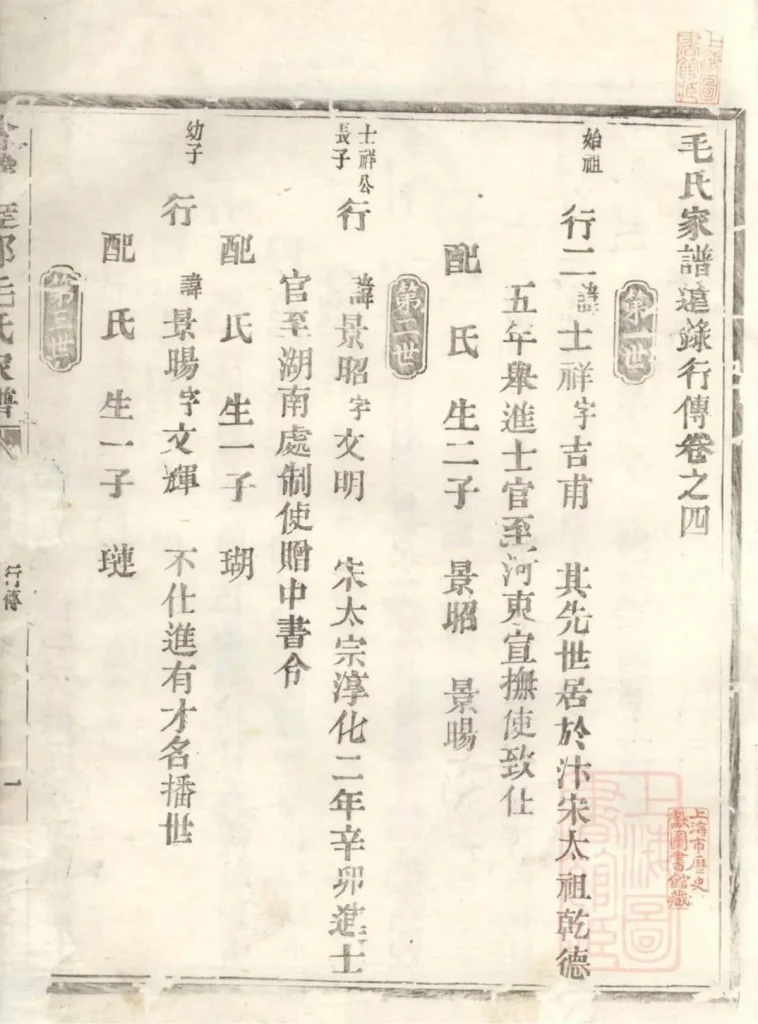 毛氏家譜遠錄行傳卷之四
第一世
始祖
行二諱士祥字吉甫 其先世居於汴宋太祖乾德
五年舉進士官至河東宣撫使致仕
配 氏 生二子 景昭 景暘
第二世
士祥公
長子
行 諱景昭字文明 宋太宗淳化二年辛卯進士
官至湖南處制使贈中書令
配 氏 生一子 瑚
幼子
行 諱景暘字文輝 不仕進有才名播世
配 氏 生一子 璉
第三世
毛氏家譜
行傳
一
上海圖
書館藏
上海市歷史
獻圖書館藏
上海圖
書館藏